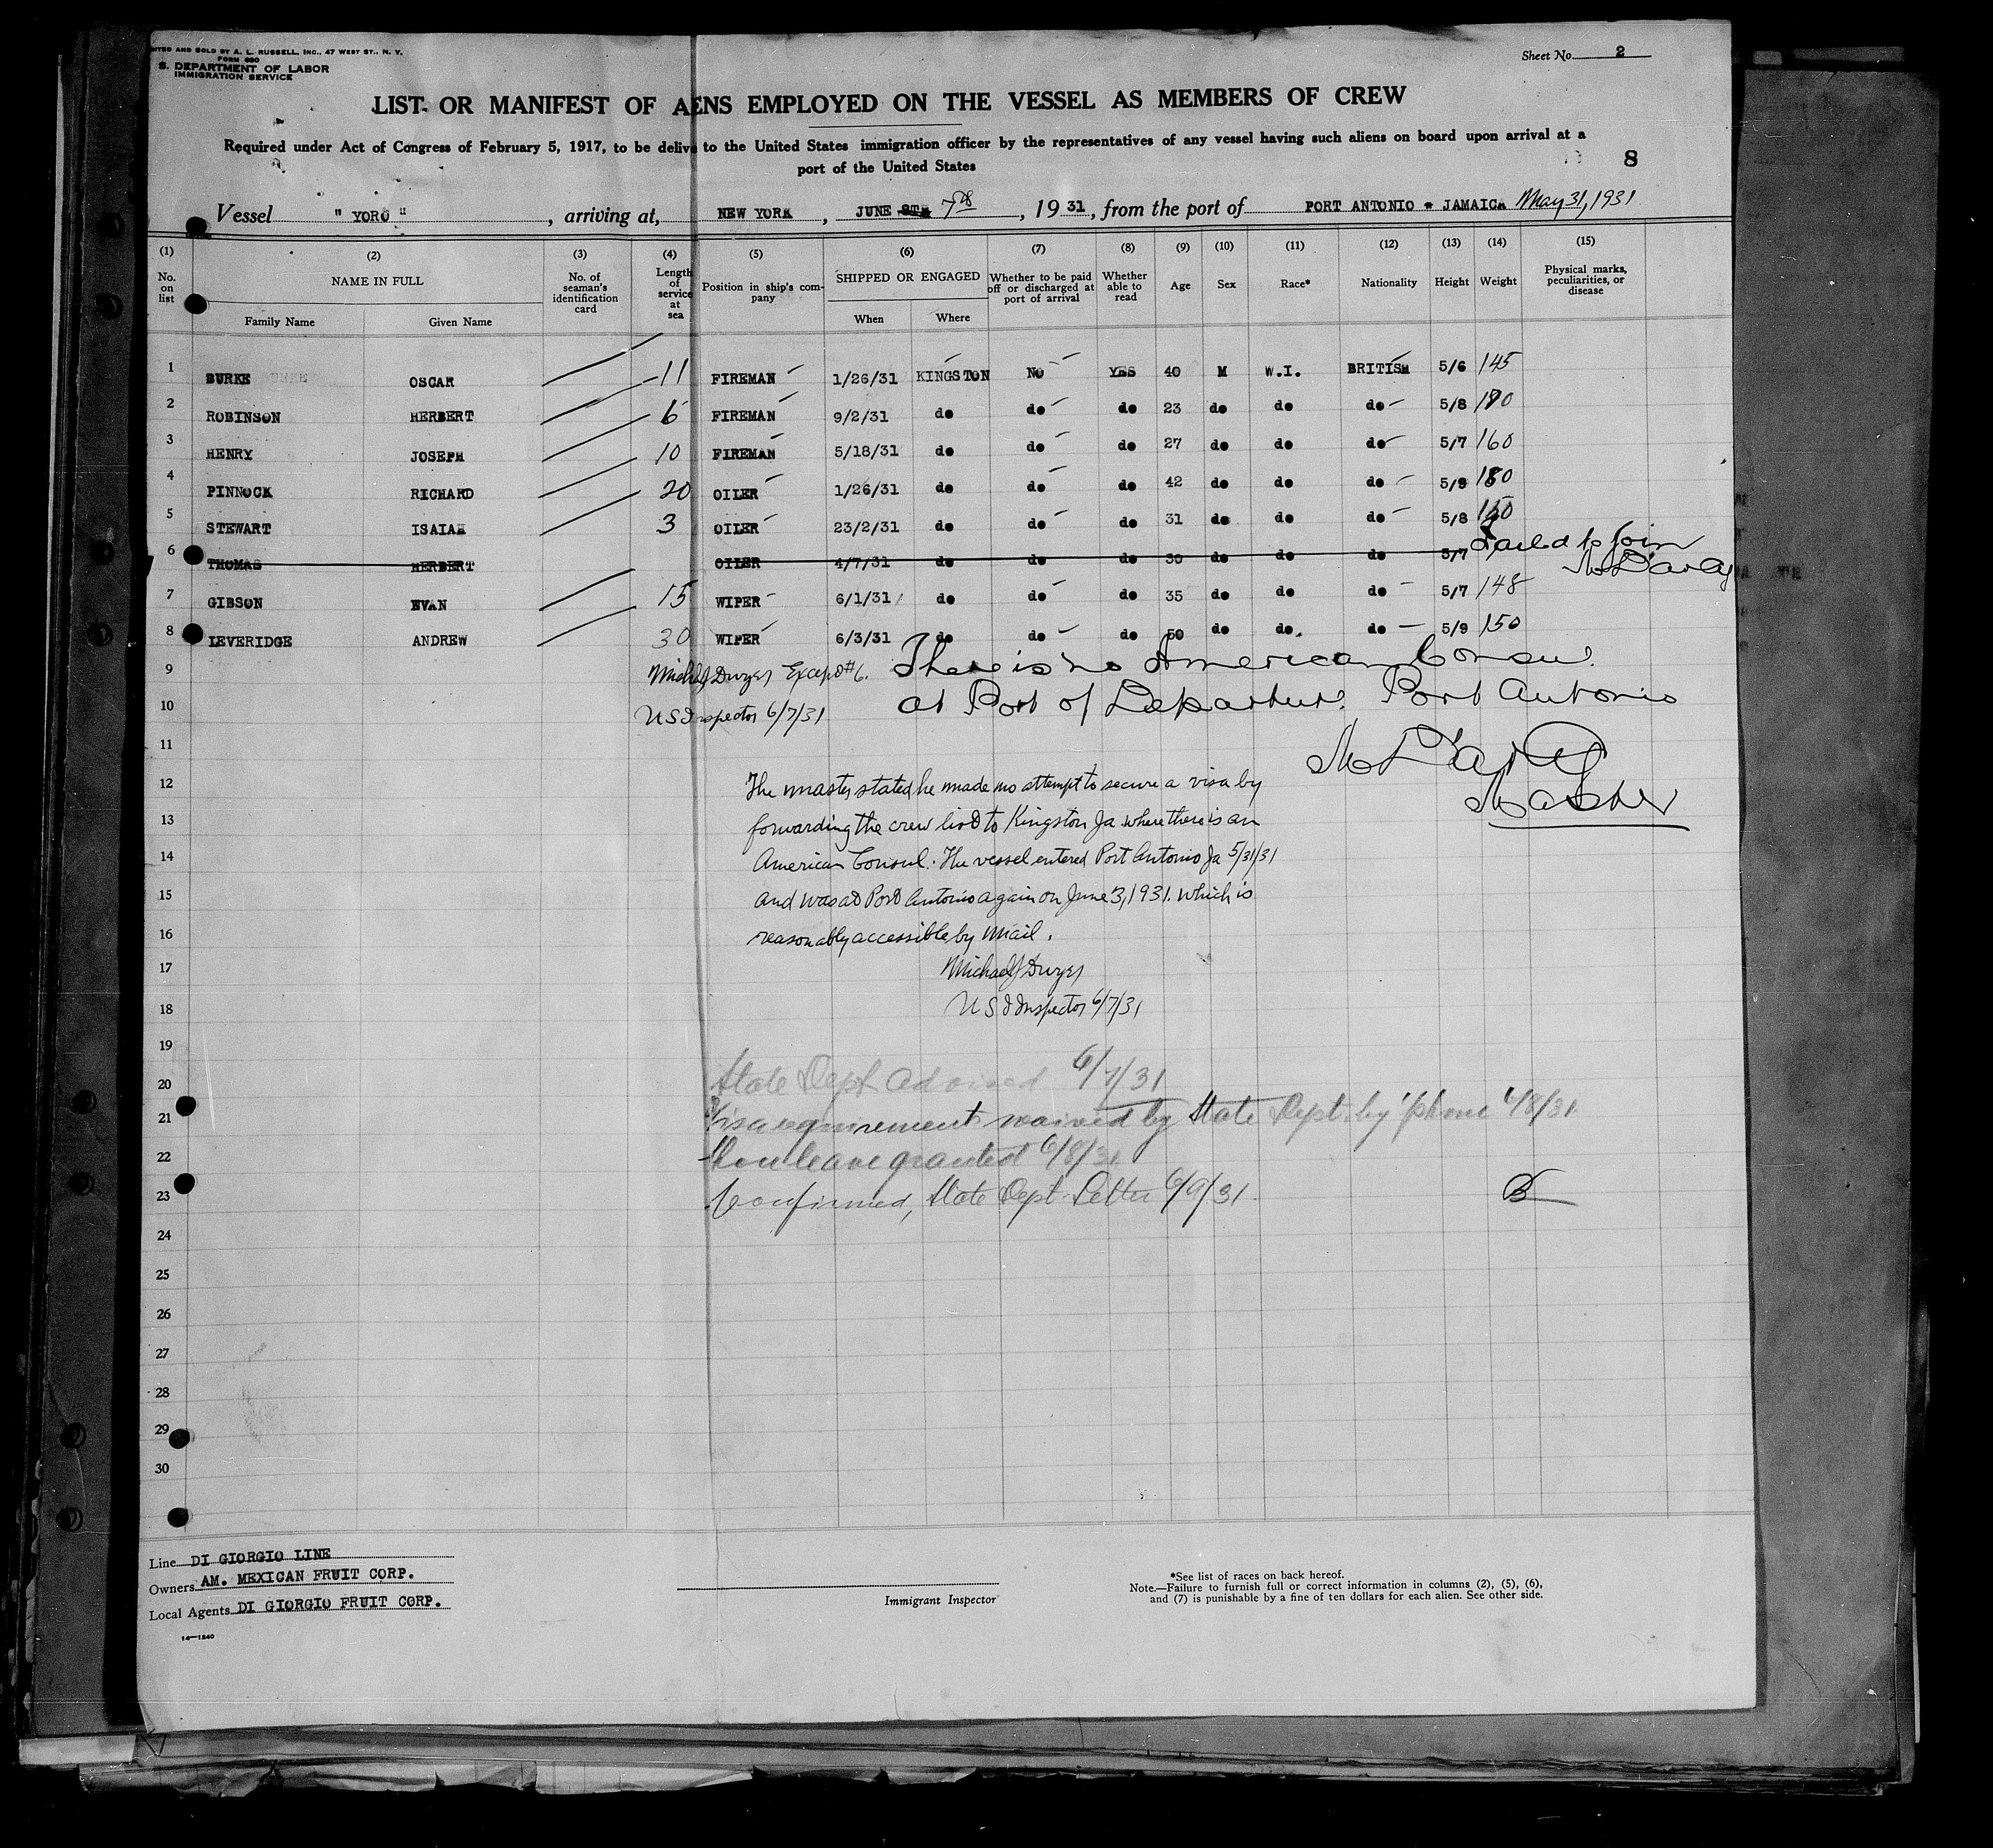 NTED AND SOLD BY A. L. RUSSELL, INC., 47 WEST ST., N. Y.
FORM 680
S. DEPARTMENT OF LABOR
IMMIGRATION SERVICE
Sheet No. 2
LIST OR MANIFEST OF AENS EMPLOYED ON THE VESSEL AS MEMBERS OF CREW
Required under Act of Congress of February 5, 1917, to be delive to the United States immigration officer by the representatives of any vessel having such aliens on board upon arrival at a
port of the United States
8
Vessel " YORO " , arriving at, NEW YORK , JUNE 8TH 7th , 1931, from the port of PORT ANTONIO * JAMAICA May 31, 1931
(1) (2) (3) (4) (5) (6) (7) (8) (9) (10) (11) (12) (13) (14) (15)
No. on list NAME IN FULL Family Name Given Name No. of seaman's identification card Length of service at sea Position in ship's company SHIPPED OR ENGAGED When Where Whether to be paid off or discharged at port of arrival Whether able to read Age Sex Race* Nationality Height Weight Physical marks, peculiarities, or disease
1 BURKE OSCAR 11 FIREMAN 1/26/31 KINGSTON NO YES 40 M W.I. BRITISH 5/6 145
2 ROBINSON HERBERT 6 FIREMAN 9/2/31 do do do 23 do do do 5/8 180
3 HENRY JOSEPH 10 FIREMAN 5/18/31 do do do 27 do do do 5/7 160
4 PINNOCK RICHARD 20 OILER 1/26/31 do do do 42 do do do 5/9 180
5 STEWART ISAIAH 3 OILER 23/2/31 do do do 31 do do do 5/8 150
6 THOMAS HERBERT OILER 4/7/31 do do do 30 do do do 5/7 Failed to join
7 GIBSON EVAN 15 WIPER 6/1/31 do do do 35 do do do 5/7 148
8 LEVERIDGE ANDREW 30 WIPER 6/3/31 do do do 50 do do. do 5/9 150
9 Michael J Dwyer Except #6. There is no American Consul
10 US Inspector 6/7/31 at Port of Departure. Port Antonio
11
Master
12 The master stated he made no attempt to secure a visa by
13 forwarding the crew list to Kingston Ja where there is an
14 American Consul. The vessel entered Port Antonio Ja 5/31/31
15 and was at Port Antonio again on June 3, 1931. which is
16 reasonably accessible by mail.
17 Michael J Dwyer
18 U S I Inspector 6/7/31
19
20 State Dept advised 6/7/31
21 Visa requirements waived by State Dept. by 'phone 6/8/31
22 Shore leave granted 6/8/31
23 Confirmed, State Dept. Letter 6/9/31.
24
25
26
27
28
29
30
Line DI GIORGIO LINE
Owners AM. MEXICAN FRUIT CORP.
Local Agents DI GIORGIO FRUIT CORP.
14—1240
Immigrant Inspector
*See list of races on back hereof.
Note.—Failure to furnish full or correct information in columns (2), (5), (6),
and (7) is punishable by a fine of ten dollars for each alien. See other side.